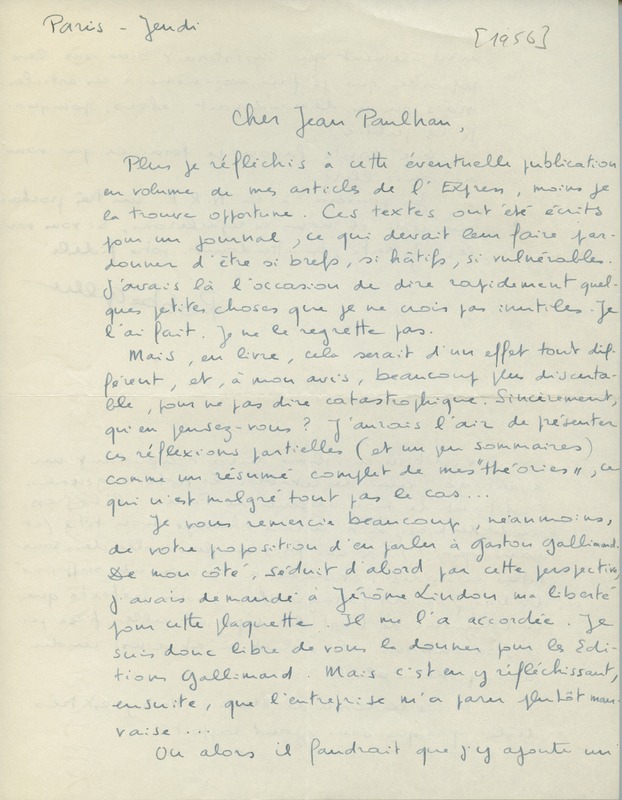 Paris - Jeudi
[1956]
Cher Jean Paulhan,
Plus je réfléchis à cette éventuelle publication
en volume de mes articles de l'Express, moins je
la trouve opportune. Ces textes ont été écrits
pour un journal, ce qui devait leur faire par-
donner d'être si brefs, si hâtifs, si vulnérables.
J'avais là l'occasion de dire rapidement quel-
ques petites choses que je ne crois pas inutiles. Je
l'ai fait. Je ne le regrette pas.
Mais, en livre, cela serait d'un effet tout dif-
férent, et, à mon avis, beaucoup plus discuta-
ble, pour ne pas dire catastrophique. Sincèrement,
qu'en pensez-vous ? J'aurais l'air de présenter
ces réflexions partielles (et un peu sommaires)
comme un résumé complet de mes "théories", ce
qui n'est malgré tout pas le cas...
Je vous remercie beaucoup, néanmoins,
de votre proposition d'en parler à Gaston Gallimard.
De mon côté, séduit d'abord par cette perspective,
j'avais demandé à Jérôme Lindon ma liberté
pour cette plaquette. Il me l'a accordée. Je
suis donc libre de vous la donner pour les Edi-
tions Gallimard. Mais c'est en y réfléchissant,
ensuite, que l'entreprise m'a paru plutôt mau-
vaise...
Ou alors il faudrait que j'y ajoute un